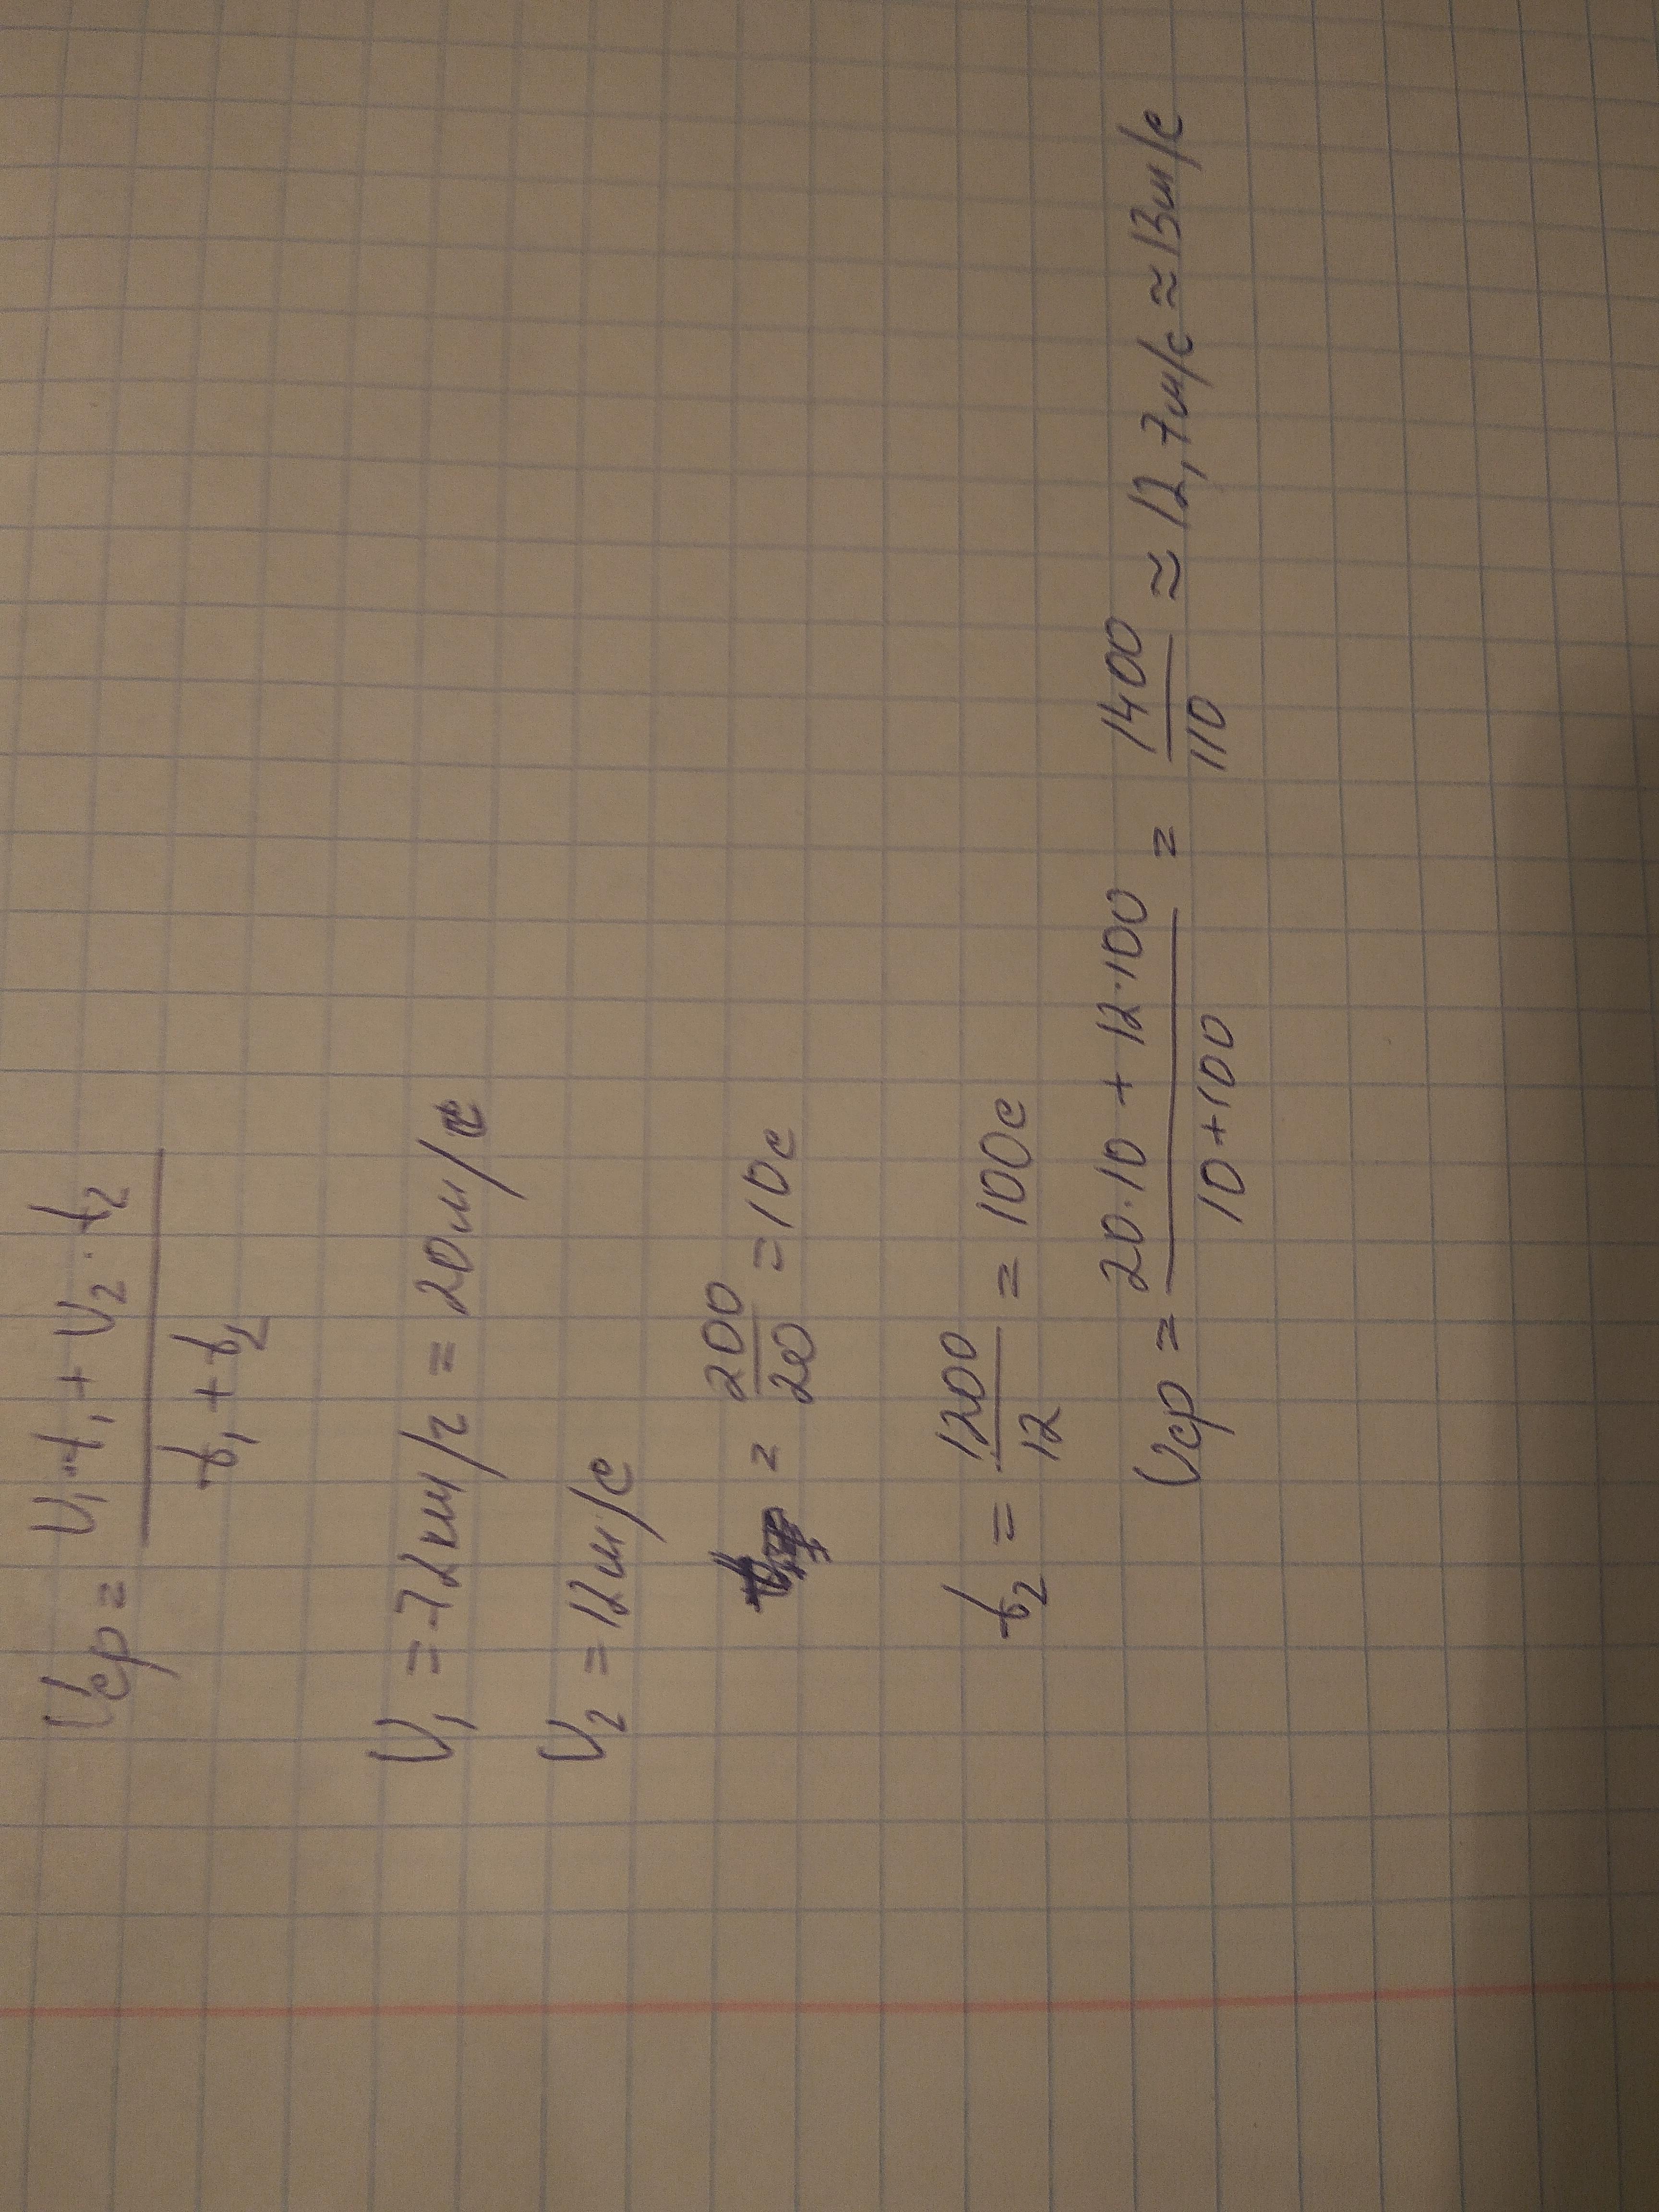 Vср = V₁·t₁ + V₂·t₂ / t₁ + t₂
V₁ = 72км/г = 20м/с
V₂ = 12м/с
= 200/20 = 10с
t₂ = 1200/12 = 100с
Vср = 20·10 + 12·100 / 10+100 = 1400/110 ≈ 12,7м/с ≈ 13м/с